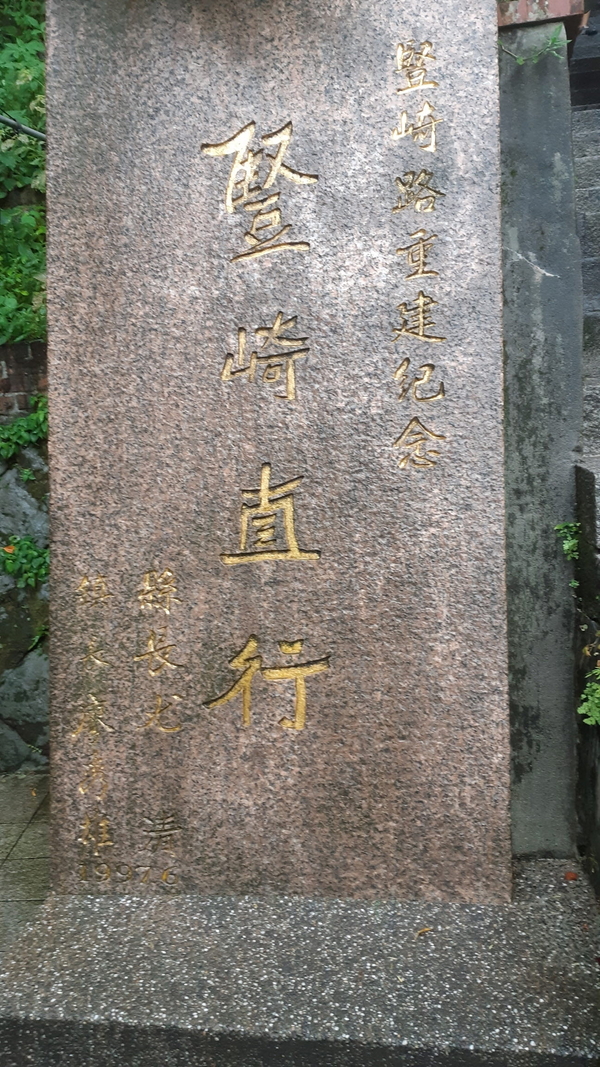 豎崎路重建紀念
豎崎直行
縣長尤 清
鎮長廖秀雄
1997.6